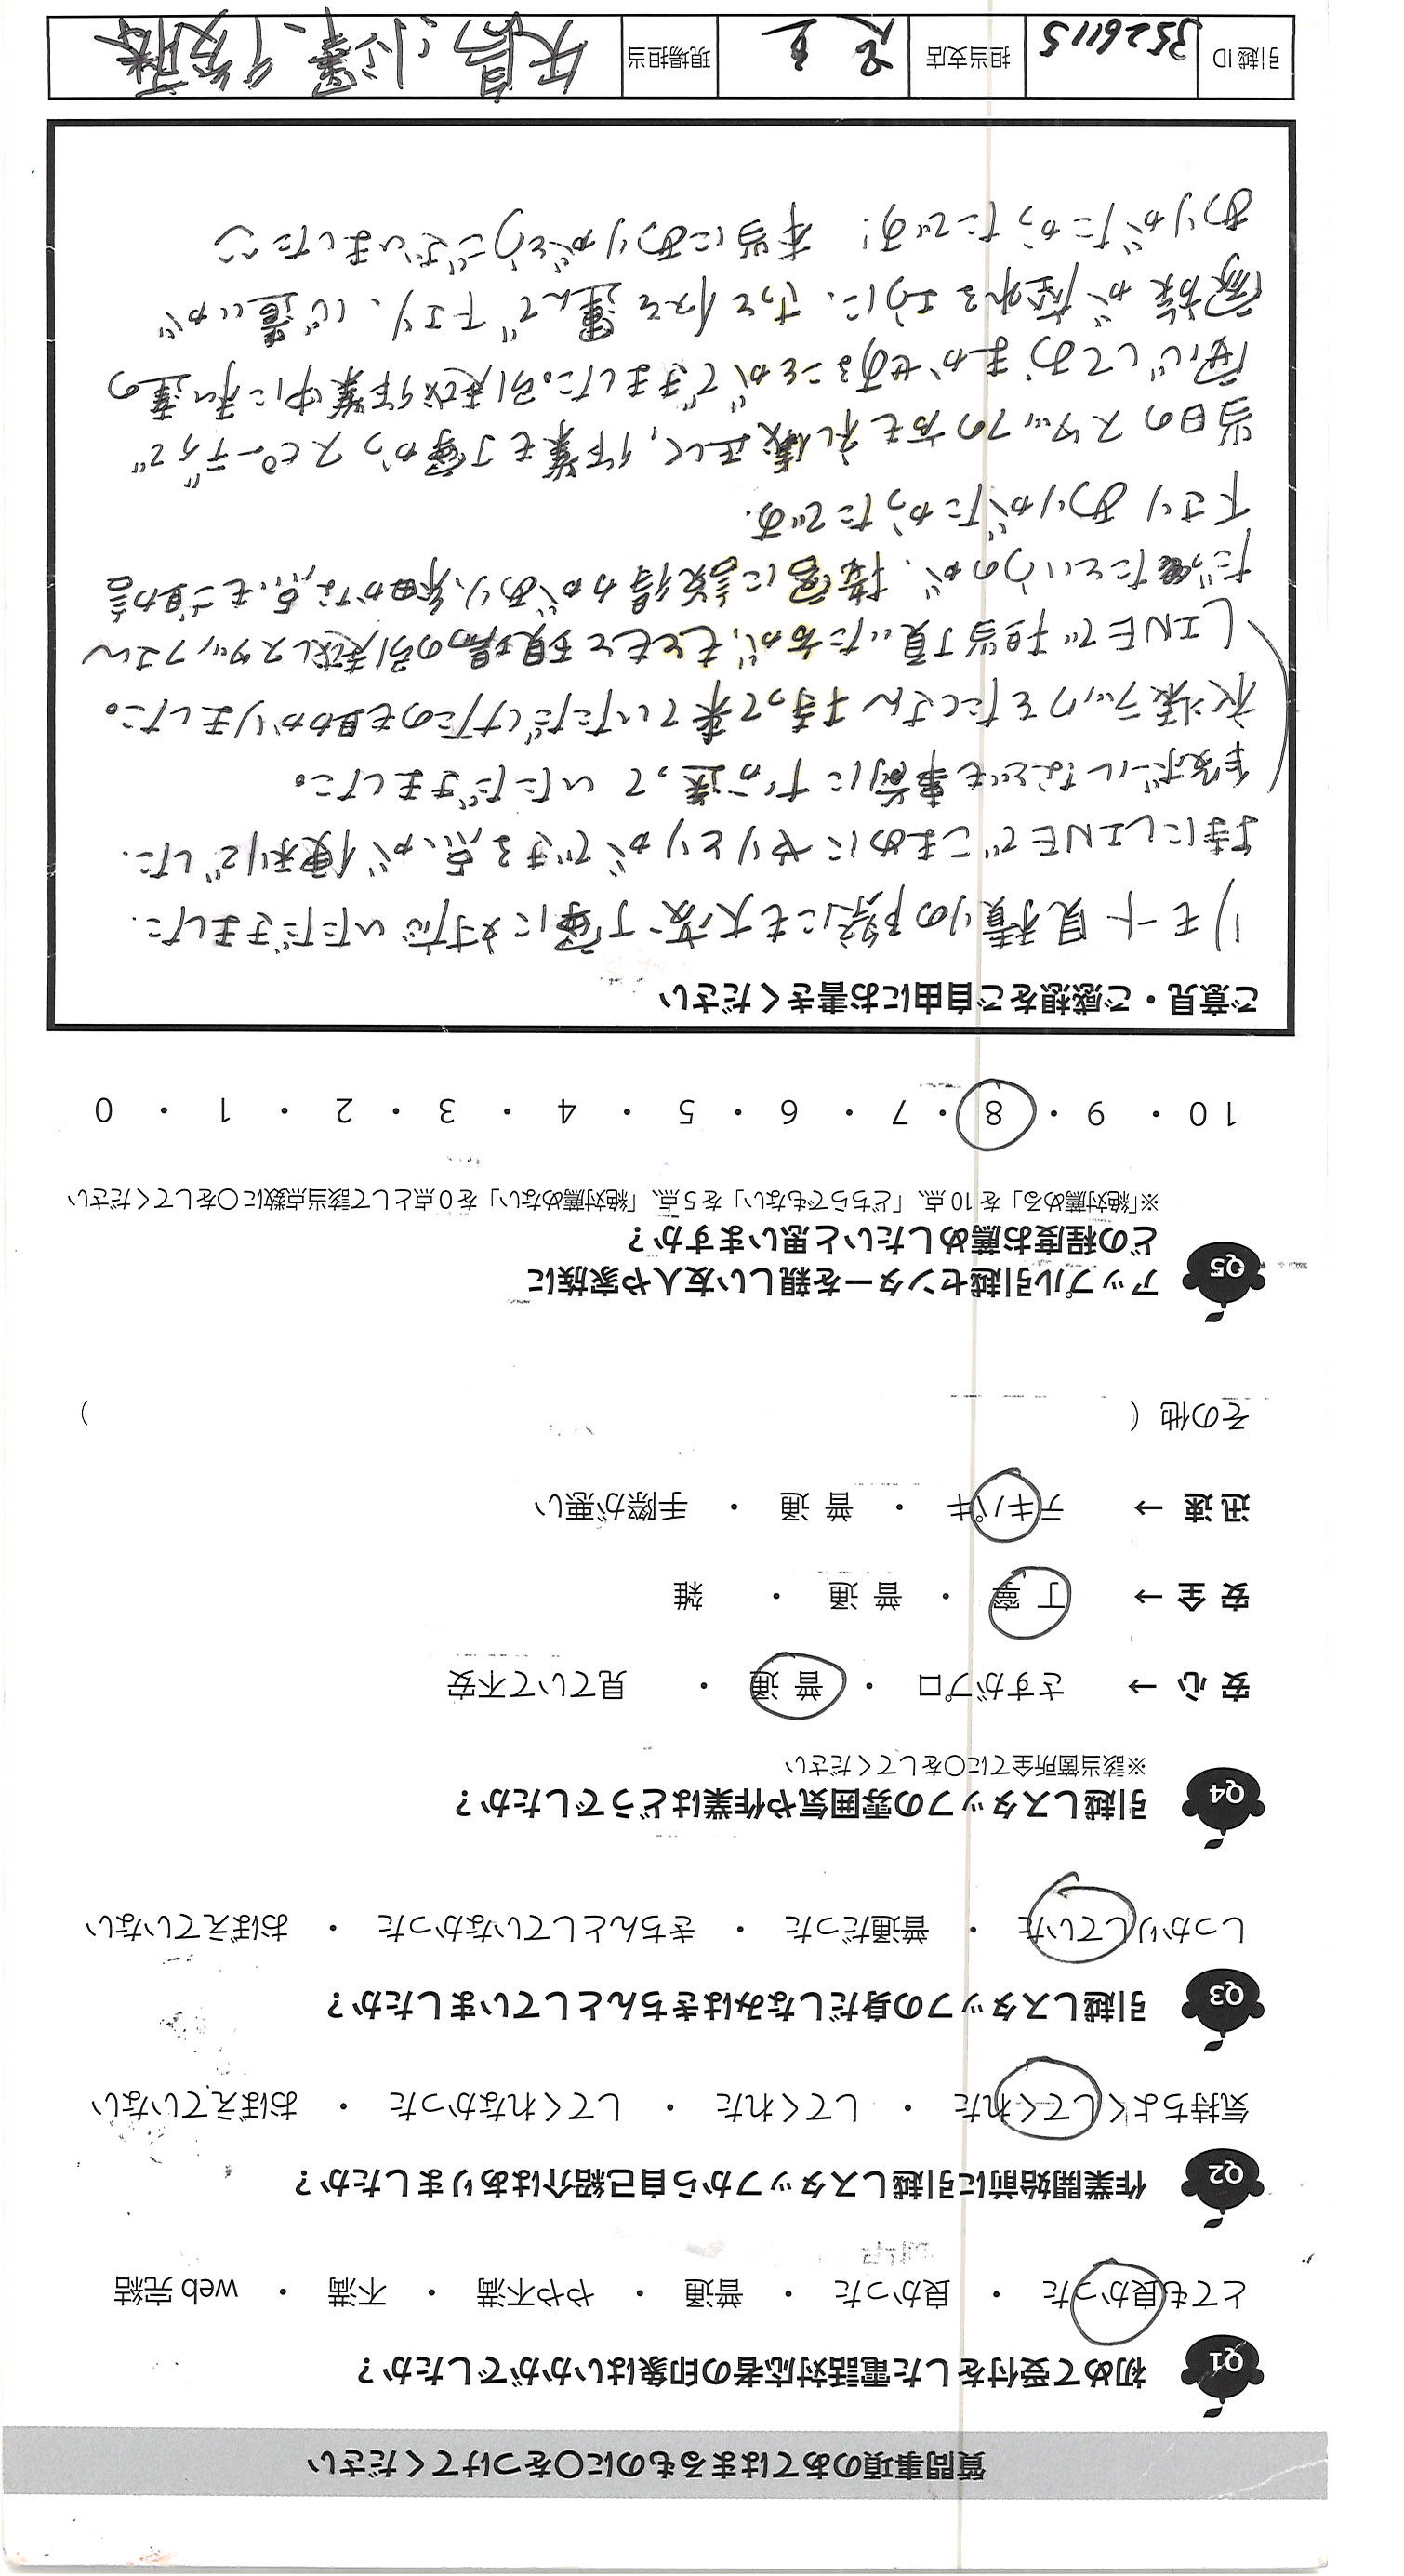 質問事項のあてはまるものに○をつけてください
Q1 初めて受付をした電話対応者の印象はいかがでしたか？
とても良かった ・ 良かった ・ 普通 ・ やや不満 ・ 不満 ・ web 完結
Q2 作業開始前に引越しスタッフから自己紹介はありましたか？
気持ちよくしてくれた ・ してくれた ・ してくれなかった ・ おぼえていない
Q3 引越しスタッフの身だしなみはきちんとしていましたか？
しっかりしていた ・ 普通だった ・ きちんとしていなかった ・ おぼえていない
Q4 引越しスタッフの雰囲気や作業はどうでしたか？
※該当箇所全てに○をしてください
安 心 → さすがプロ ・ 普 通 ・ 見ていて不安
安 全 → 丁 寧 ・ 普 通 ・ 雑
迅 速 → テキパキ ・ 普 通 ・ 手際が悪い
その他（ ）
Q5 アップル引越センターを親しい友人や家族に
どの程度お薦めしたいと思いますか？
※「絶対薦める」を 10 点、「どちらでもない」を 5 点、「絶対薦めない」を 0 点として該当点数に○をしてください
10 ・ 9 ・ 8 ・ 7 ・ 6 ・ 5 ・ 4 ・ 3 ・ 2 ・ 1 ・ 0
ご意見・ご感想をご自由にお書きください
リモート見積りの際にも大変丁寧に対応いただきました.
ときにLINEでこまめにやりとりができる点が便利でした.
段ボールなども事前に 送って いただきました。
衣装ラックをたくさん持って来ていただけたのも助かりました。
LINEで担当頂いた方が、もともと現場の引越しスタッフさん
だったというのが、接客に説得力があり、細かな点もご助言
下さり ありがたかったです.
当日のスタッフの方も礼儀正しく、作業も丁寧かつスピーディで
安心しておまかせすることができました。引越び作業中に私達の
家族が座れるように、さっとイスを運んで下さり、心遣いが
ありがたかったです! 本当にありがとうございました
引越 ID 3526115 担当支店 足立 現場担当 矢島、小澤、後藤